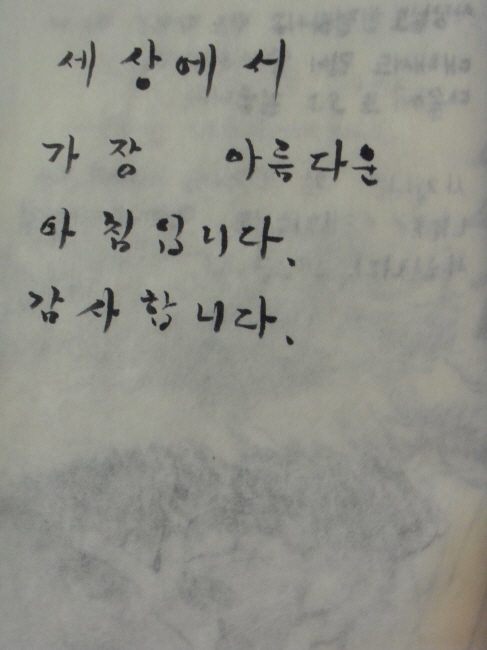 세상에서
가장 아름다운
아침입니다.
감사합니다.